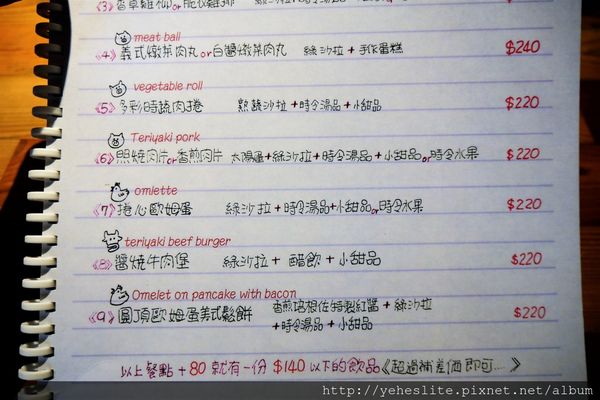 《3》香草雞柳or脆皮雞排
meat ball
《4》義式燉菜肉丸or白醬燉菜肉丸 綠沙拉+手作蛋糕 $240
vegetable roll
《5》多彩時蔬肉捲 熟蔬沙拉+時令湯品+小甜品 $220
Teriyaki pork
《6》照燒肉片or香煎肉片 太陽蛋+綠沙拉+時令湯品+小甜品or時令水果 $220
omlette
《7》捲心歐姆蛋 綠沙拉+時令湯品+小甜品or時令水果 $220
teriyaki beef burger
《8》醬燒牛肉堡 綠沙拉+醋飲+小甜品 $220
Omelet on pancake with bacon
《9》圓頂歐姆蛋美式鬆餅 香煎培根佐特製紅醬+綠沙拉 $220
+時令湯品+小甜品
以上餐點+80就有一份$140以下的飲品《超過補差價即可...》
http://yeheslite.pixnet.net/album